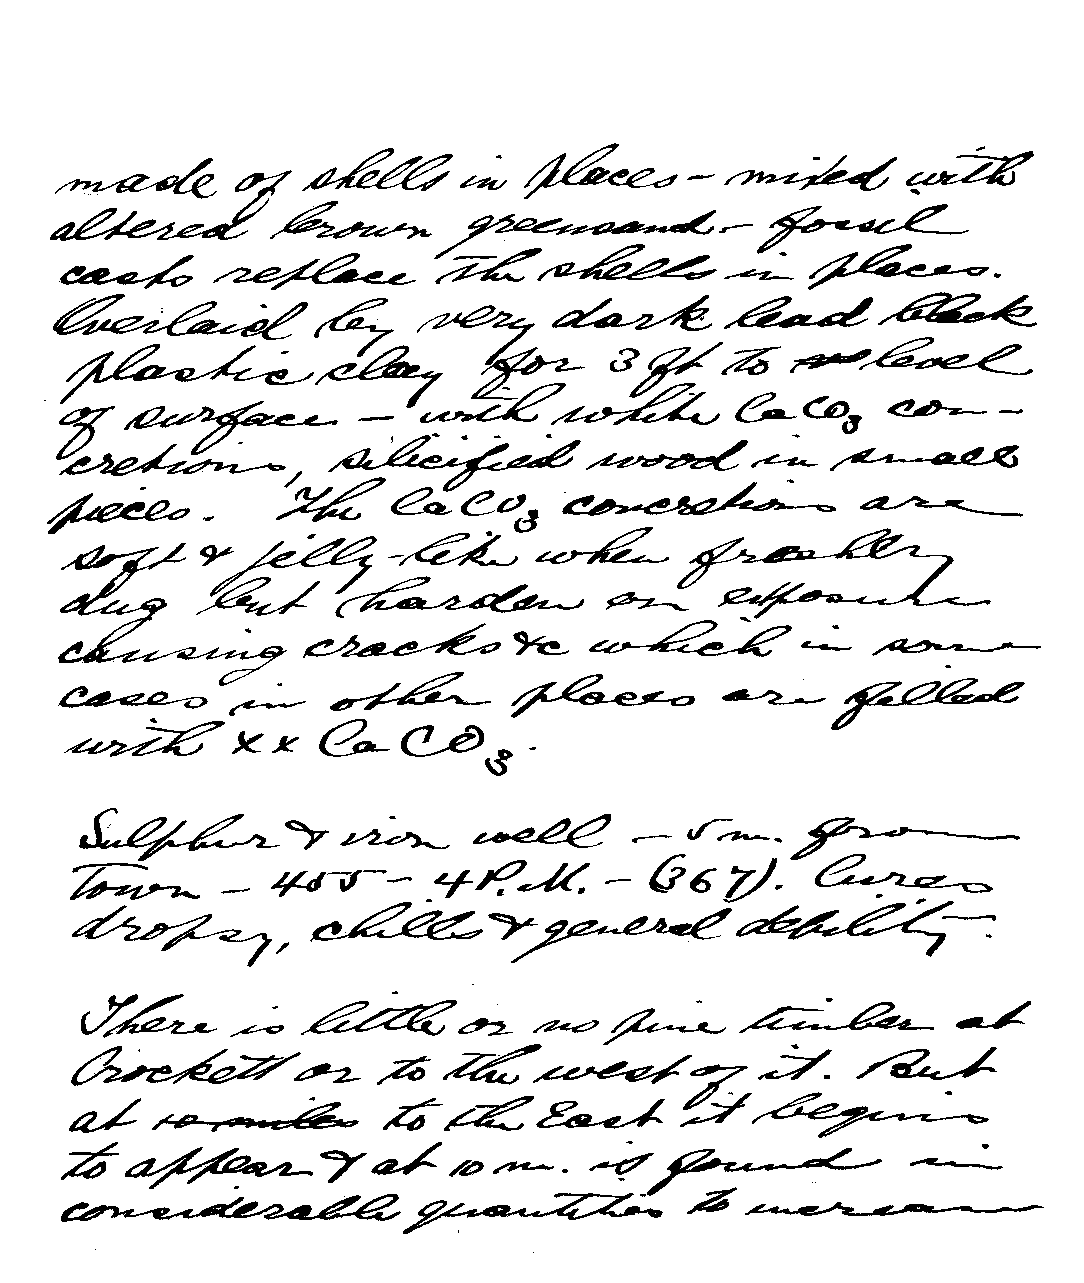 made of shells in places - mixed with
altered brown greensand - fossil
casts replace the shells in places.
Overlaid by very dark lead black
plastic clay for 3 ft to level
of surface - with white CaCO3 con-
cretions, silicified wood in small
pieces. The CaCO3 concretions are
soft & jelly-like when freshly
dug but harden on exposure
causing cracks &c which in some
cases in other places are filled
with xx CaCO3.
Sulphur & iron well - 5 m. from
town - 455 - 4 P.M. - (367). Cures
dropsy, chills & general debility.
There is little or no pine timber at
Crockett or to the west of it. But
at 10 miles to the East it begins
to appear & at 10 m. is found in
considerable quantities to increase